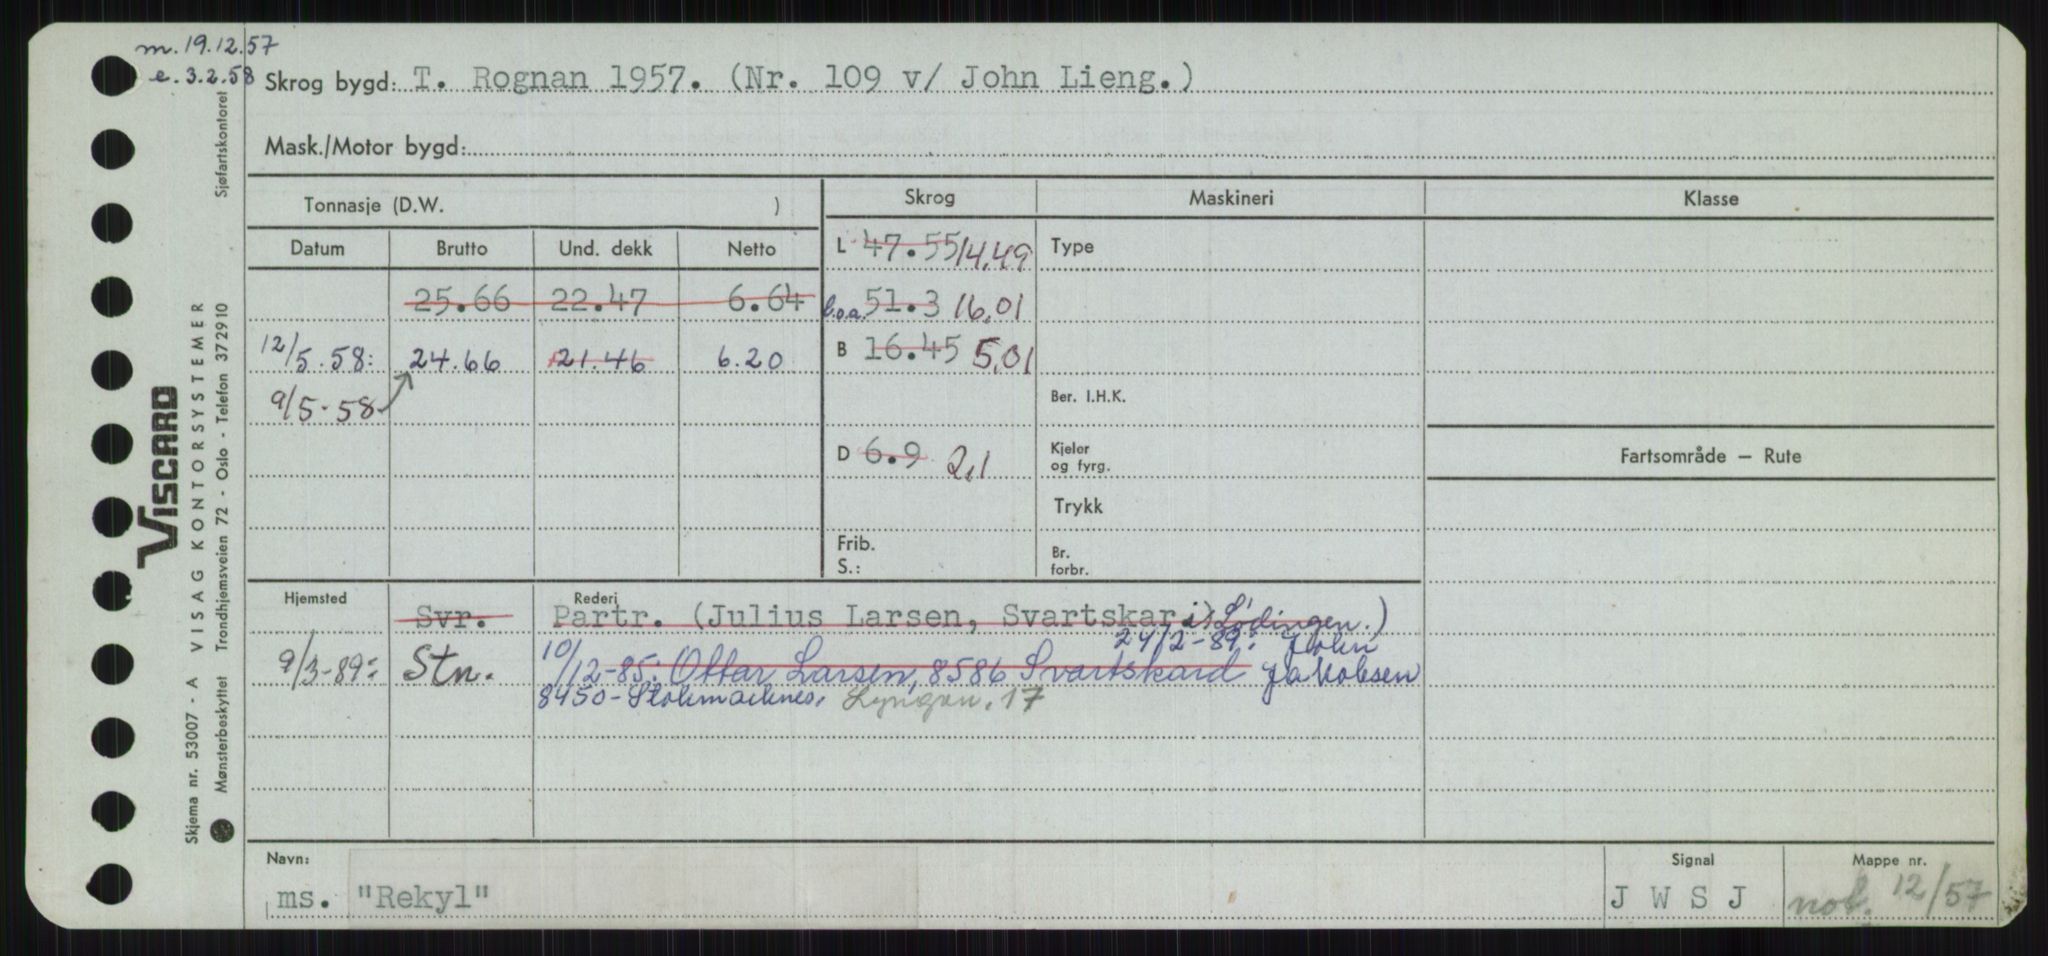 m. 19.12.57
e. 3.2.58
Skrog bygd: T. Rognan 1957. (Nr. 109 v/ John Lieng.)
Mask./Motor bygd:
Tonnasje (D.W. )
Skrog
Maskineri
Klasse
Datum Brutto Und. dekk Netto
25.66 22.47 6.64
12/5.58: 24.66 21.46 6.20
9/5-58
L 47.55 14.49
b.o.a. 51.3 16.01
B 16.45 5.01
D 6.9 2,1
Frib.
S.:
Type
Ber. I.H.K.
Kjeler
og fyrg.
Trykk
Br.
forbr.
Fartsområde — Rute
Hjemsted
Rederi
Svr. Partr. (Julius Larsen, Svartskar i Lødingen.)
24/2-89: John
9/3-89: Stn. 10/12-85: Ottar Larsen, 8586 Svartskard Jakobsen
8450-Stokmarknes. Lyngvn. 17
Navn:
ms. "Rekyl"
Signal
J W S J
Mappe nr.
not. 12/57
VISCARD
Skjema nr. 53007 - A VISAG KONTORSYSTEMER
Mønsterbeskyttet Trondhjemsveien 72 - Oslo - Telefon 372910
Sjøfartskontoret